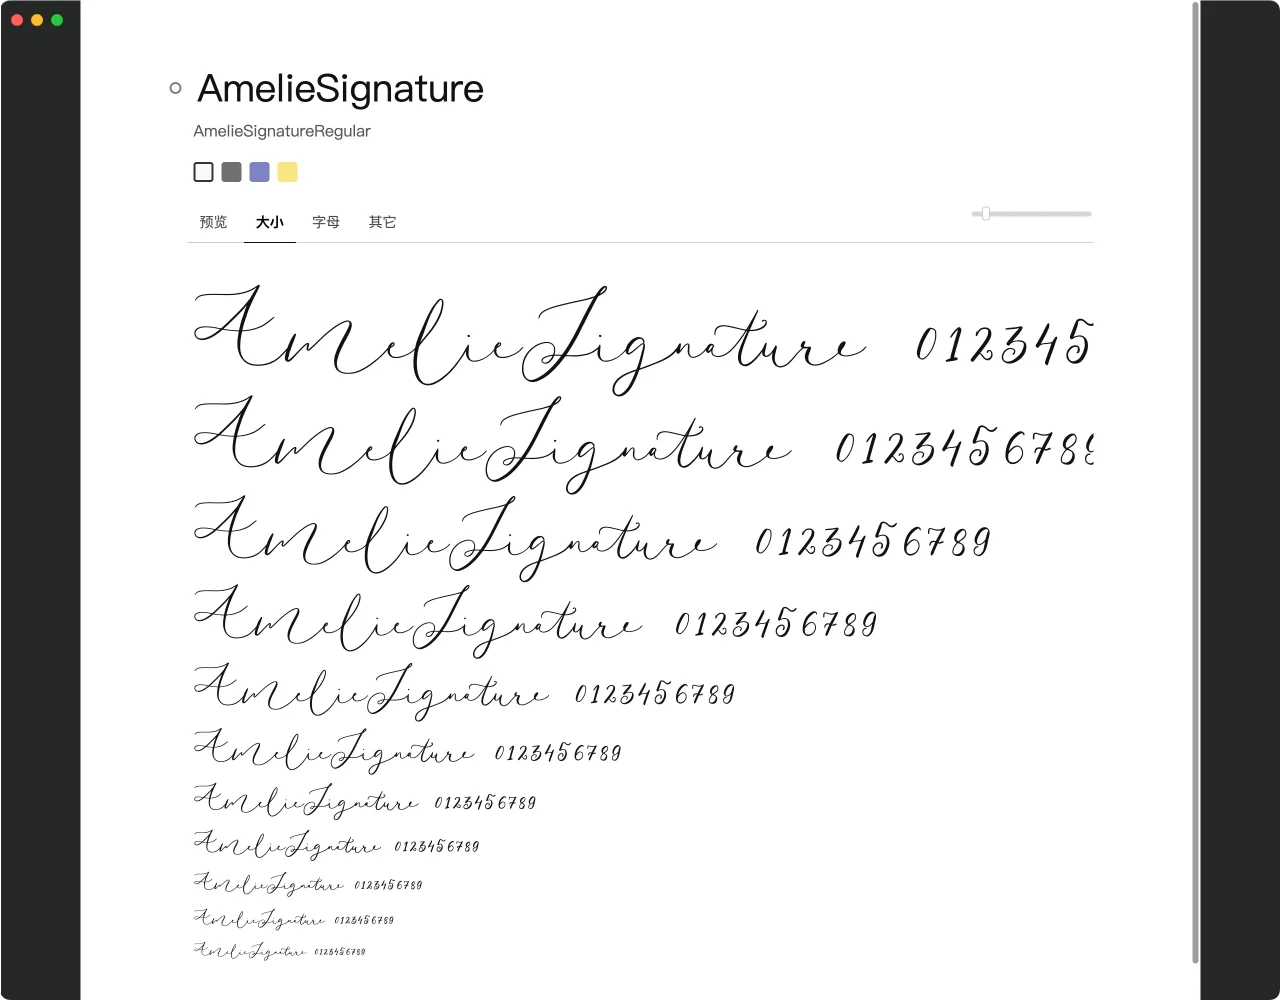 AmelieSignature
AmelieSignatureRegular
预览 大小 字母 其它
AmelieSignature 012345
AmelieSignature 012345678
AmelieSignature 0123456789
AmelieSignature 0123456789
AmelieSignature 0123456789
AmelieSignature 0123456789
AmelieSignature 0123456789
AmelieSignature 0123456789
AmelieSignature 0123456789
AmelieSignature 0123456789
AmelieSignature 0123456789